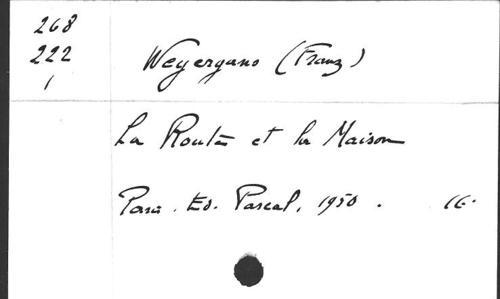 268
222
1
Weyergans (Franz)
La Route et la Maison
Paris. Ed. Pascal, 1950. 16.